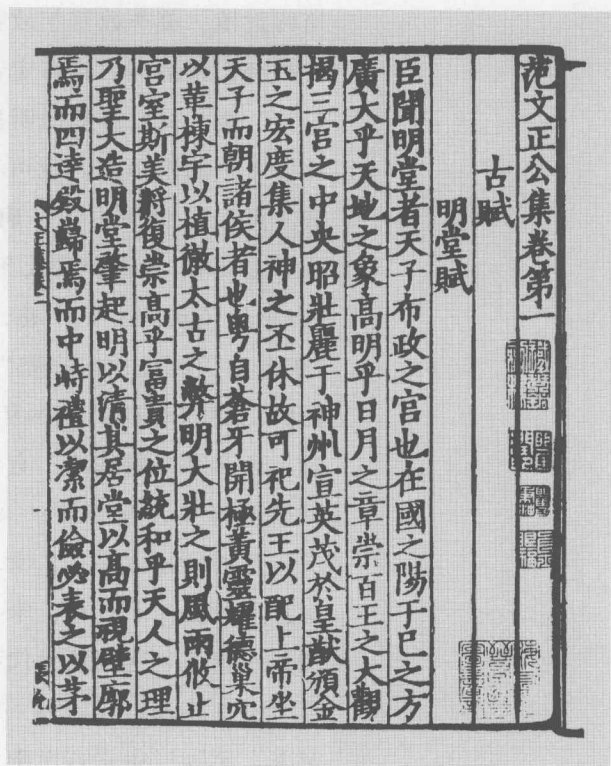 范文正公集卷第一
古賦
明堂賦
臣聞明堂者天子布政之宫也在國之陽于巳之方
廣大乎天地之象髙明乎日月之章崇百王之大觀
揭三宫之中央昭壯麗于神州宣英茂於皇猷頒金
玉之宏度集人神之丕休故可祀先王以配上帝坐
天子而朝諸侯者也粤自蒼牙開極黄靈耀德巢穴
以革棟宇以植徽太古之弊明大壯之則風雨攸止
宫室斯美將復崇高乎富貴之位統和乎天人之理
乃聖大造明堂肇起明以清其居堂以髙而視壁廓
焉而四達殿巋焉而中峙禮以潔而儉必表之以茅